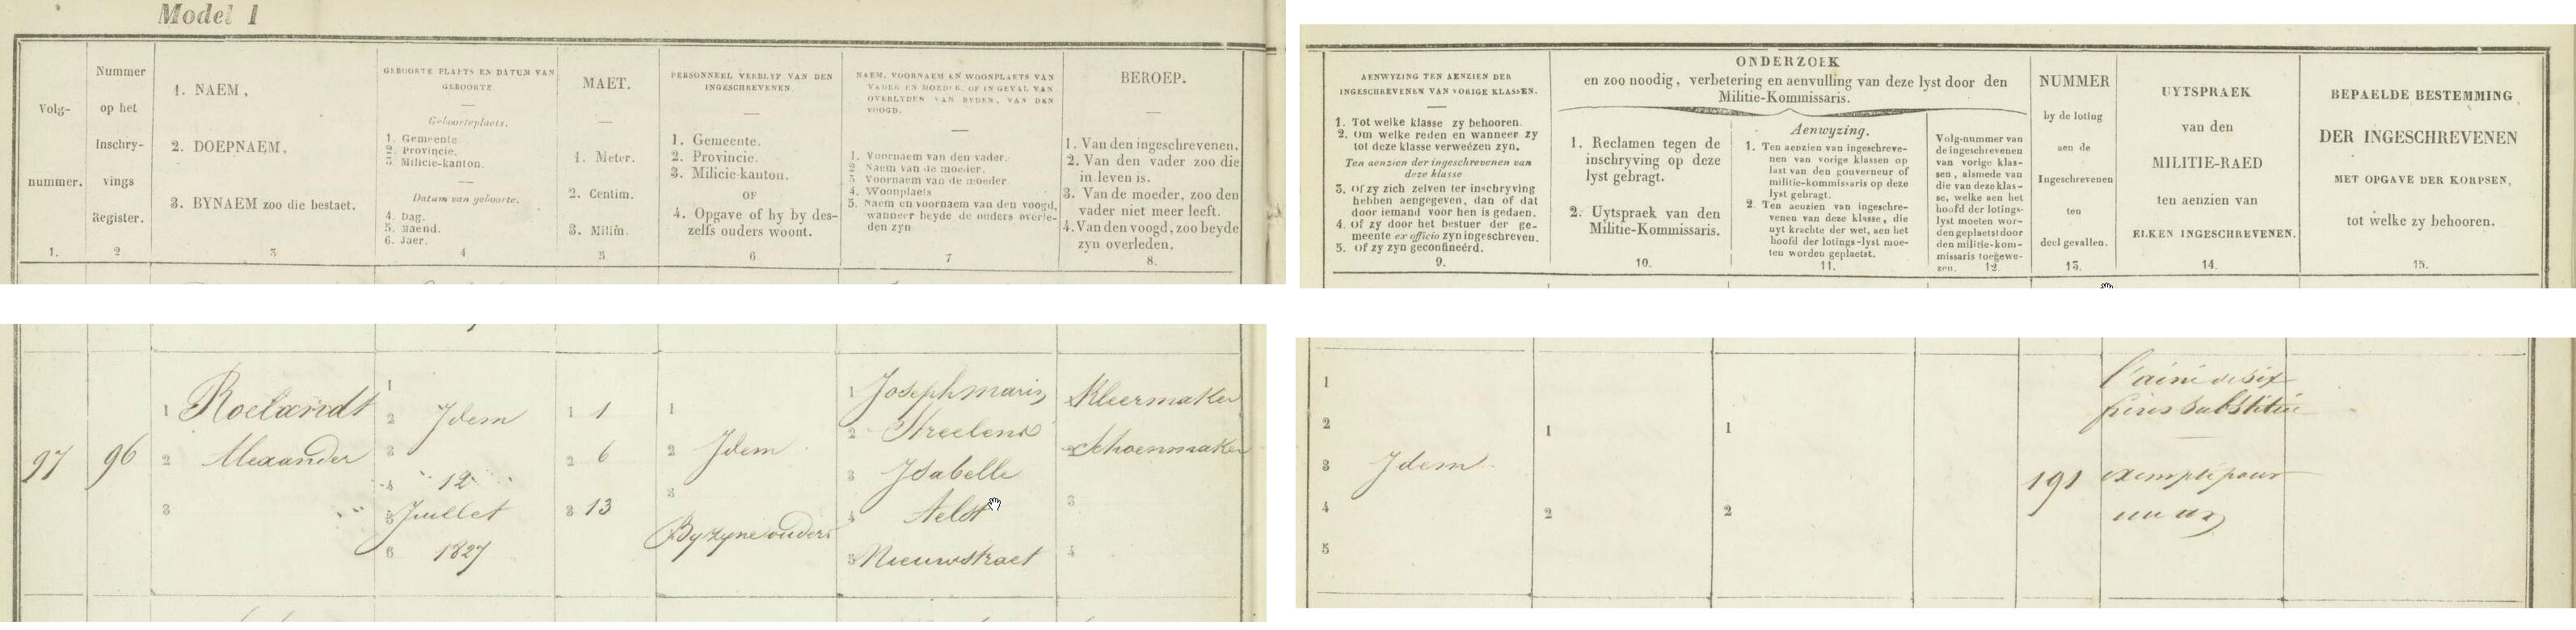 Model 1
Volg-
nummer.
1.
Nummer
op het
Inschry-
vings
Register.
2
1. NAEM,
2. DOEPNAEM,
3. BYNAEM zoo die bestaet.
3
GEBOORTE PLAETS EN DATUM VAN
GEBOORTE.
Geboorteplaets.
1. Gemeente
2. Provincie.
3. Milicie-kanton.
Datum van geboorte.
4. Dag.
5. Maend.
6. Jaer.
4
MAET.
1. Meter.
2. Centim.
3. Millim.
5.
PERSONNEEL VERBLYF VAN DEN
INGESCHREVENEN.
1. Gemeente.
2. Provincie.
3. Milicie-kanton.
OF
4. Opgave of hy by des-
zelfs ouders woont.
6
NAEM, VOORNAEM EN WOONPLAETS VAN
VADER EN MOEDER, OF IN GEVAL VAN
OVERLYDEN VAN BYDEN, VAN DEN
VOOGD.
1. Voornaem van den vader.
2 Naem van de moeder.
3 Voornaem van de moeder.
4. Woonplaets
5. Naem en voornaem van den voogd,
wanneer beyde de ouders overle-
den zyn
7
BEROEP.
1. Van den ingeschrevenen.
2. Van den vader zoo die
in leven is.
3. Van de moeder, zoo den
vader niet meer leeft.
4. Van den voogd, zoo beyde
zyn overleden.
8.
AENWYZING TEN AENZIEN DER
INGESCHREVENEN VAN VORIGE KLASSEN.
1. Tot welke klasse zy behooren.
2. Om welke reden en wanneer zy
tot deze klasse verweézen zyn.
Ten aenzien der ingeschrevenen van
deze klasse
3. Of zy zich zelven ter inschryving
hebben aengegeven, dan of dat
door iemand voor hen is gedaen.
4. Of zy door het bestuer der ge-
meente ex officio zyn ingeschreven.
5. Of zy zyn geconfineérd.
9.
ONDERZOEK
en zoo noodig, verbetering en aenvulling van deze lyst door den
Militie-Kommissaris.
1. Reclamen tegen de
inschryving op deze
lyst gebragt.
2. Uytspraek van den
Militie-Kommissaris.
10.
Aenwyzing.
1. Ten aenzien van ingeschreve-
nen van vorige klassen op
last van den gouverneur of
militie-kommissaris op deze
lyst gebragt.
2. Ten aenzien van ingeschre-
venen van deze klasse, die
uyt krachte der wet, aen het
hoofd der lotings-lyst moe-
ten worden geplaetst.
11.
Volg-nummer van
de ingeschrevenen
van vorige klas-
sen, alsmede van
die van deze klas-
se, welke aen het
hoofd der lotings-
lyst moeten wor-
den geplaetst door
den militie-kom-
missaris toegewe-
zen. 12.
NUMMER
by de loting
aen de
Ingeschrevenen
ten
deel gevallen.
13.
UYTSPRAEK
van den
MILITIE-RAED
MET OPGAVE DER KORPSEN,
ten aenzien van
ELKEN INGESCHREVENEN.
14.
BEPAELDE BESTEMMING
DER INGESCHREVENEN
tot welke zy behooren.
15.
97
96
1 Roelandt
2 Alexander
3
1
2 Idem
3
4 12
5 Juillet
6 1827
1 1
2 6
3 13
1
2 Idem
3
By zyne ouders
1 Joseph marie
2 Streelens
3 Isabelle
4 Aelst
5 Nieuwstraet
Kleermaker
2 Schoenmaker
3
4
1
2
3 Idem
4
5
1
2
1
2
191
l'ainé de six
frères substitué
exempté pour
un an